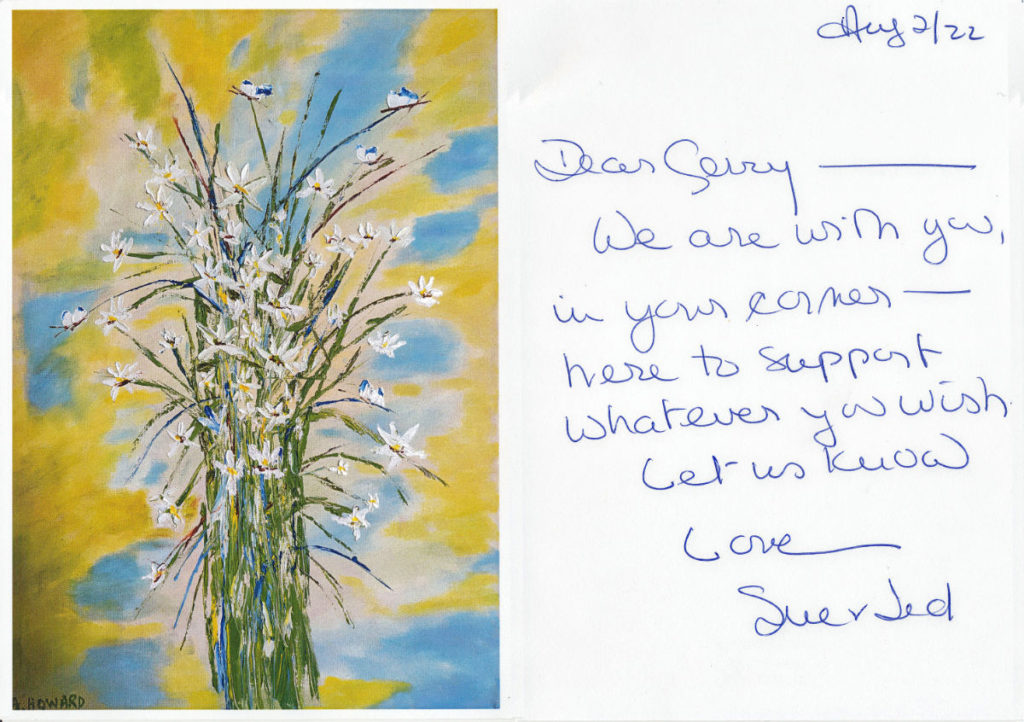 Aug 2/22
Dear Gerry —
We are with you,
in your corner —
here to support
whatever you wish.
Let us know
Love —
Sue & Jed
A. HOWARD